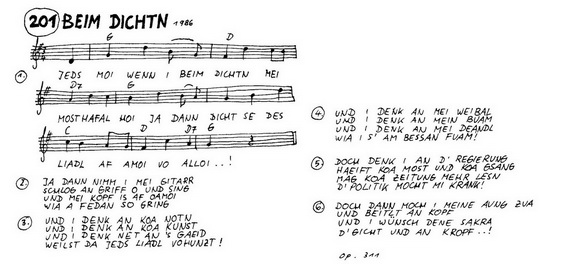 201 BEIM DICHTN 1986
G D
1. JEDS MOI WENN I BEIM DICHTN MEI
D7 G
MOSTHAFAL HOI JA DANN DICHT SE DES
C D D7 G
LIADL AF AMOI VO ALLOI..!
2. JA DANN NIMM I MEI GITARR
SCHLOG AN GRIFF O UND SING
UND MEI KOPF IS AF OAMOI
WIA A FEDAN SO GRING
3. UND I DENK AN KOA NOTN
UND I DENK AN KOA KUNST
UND I DENK NET AN 'S GAEID
WEILST DA JEDS LIADL VOHUNZT!
4. UND I DENK AN MEI WEIBAL
UND I DENK AN MEIN BUAM
UND I DENK AN MEI DEANDL
WIA I S' AM BESSAN FUAM!
5. DOCH DENK I AN D' REGIERUNG
HAEIFT KOA MOST UND KOA GSANG
MAG KOA ZEITUNG MEHR LESN
D' POLITIK MOCHT MI KRANK!
6. DOCH DANN MOCH I MEINE AUNG ZUA
UND BEITLT AN KOPF
UND I WÜNSCH DENE SAKRA
D'GICHT UND AN KROPF..!
OP. 311